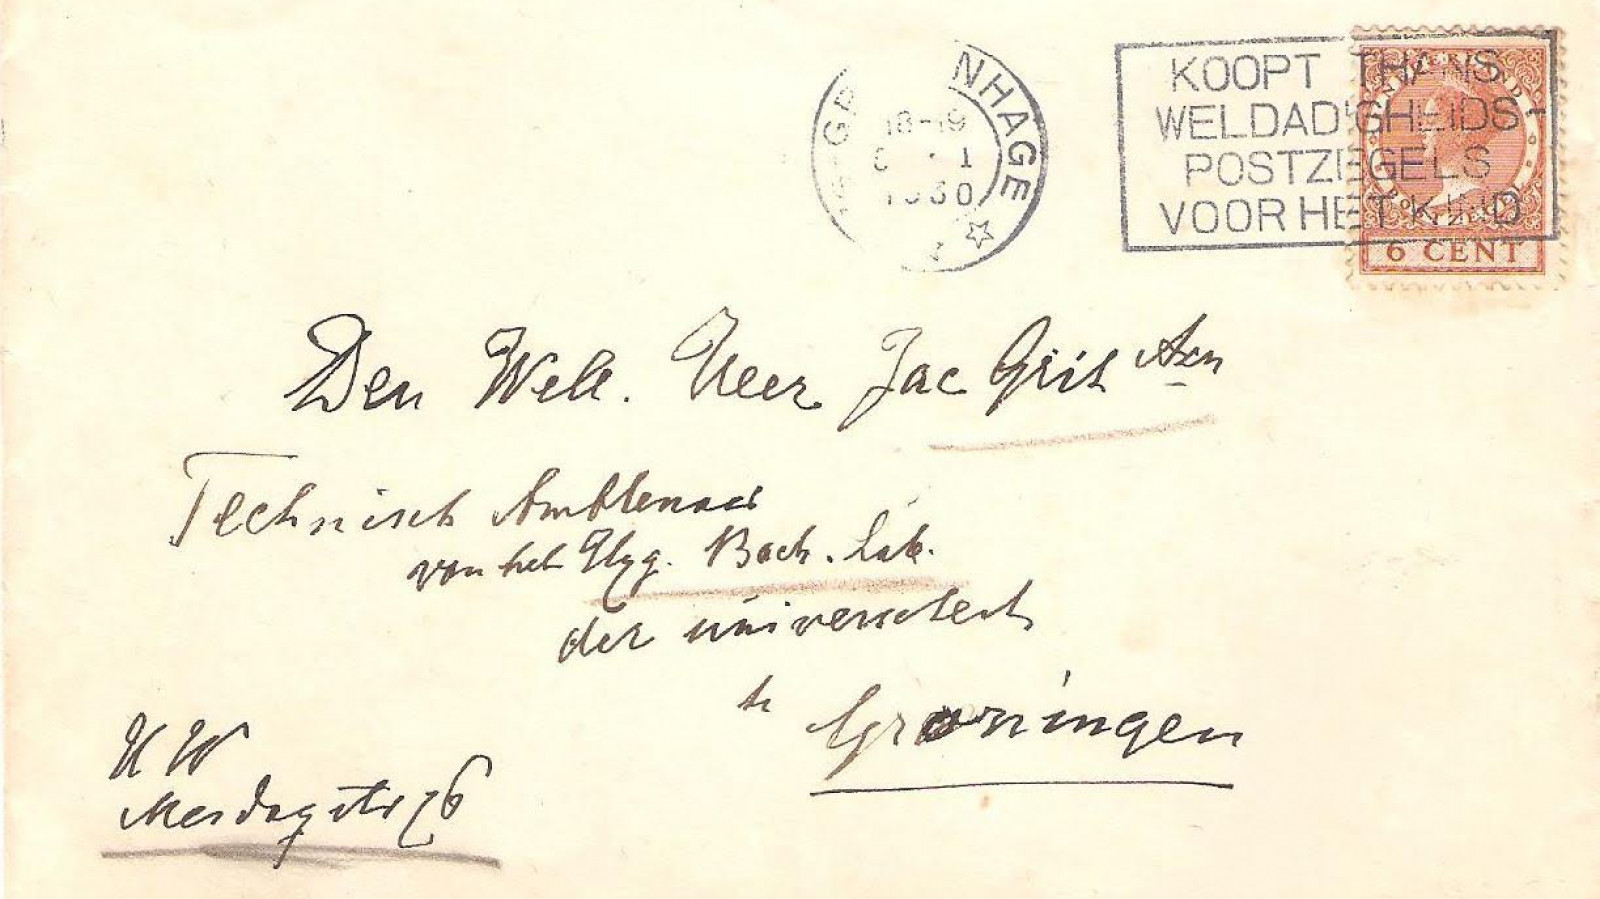 'S-GR NHAGE
18-19
1
1930
KOOPT THANS
WELDADIGHEIDS-
POSTZEGELS
VOOR HET KIND
NEDERLAND
POSTZEGEL
6 CENT
Den Wele. Heer Jac Gris Azn
Technisch Ambtenaar
van het Hyg. Bach. Lab.
der universiteit
te
Groningen
H W
Mesdagstr 76